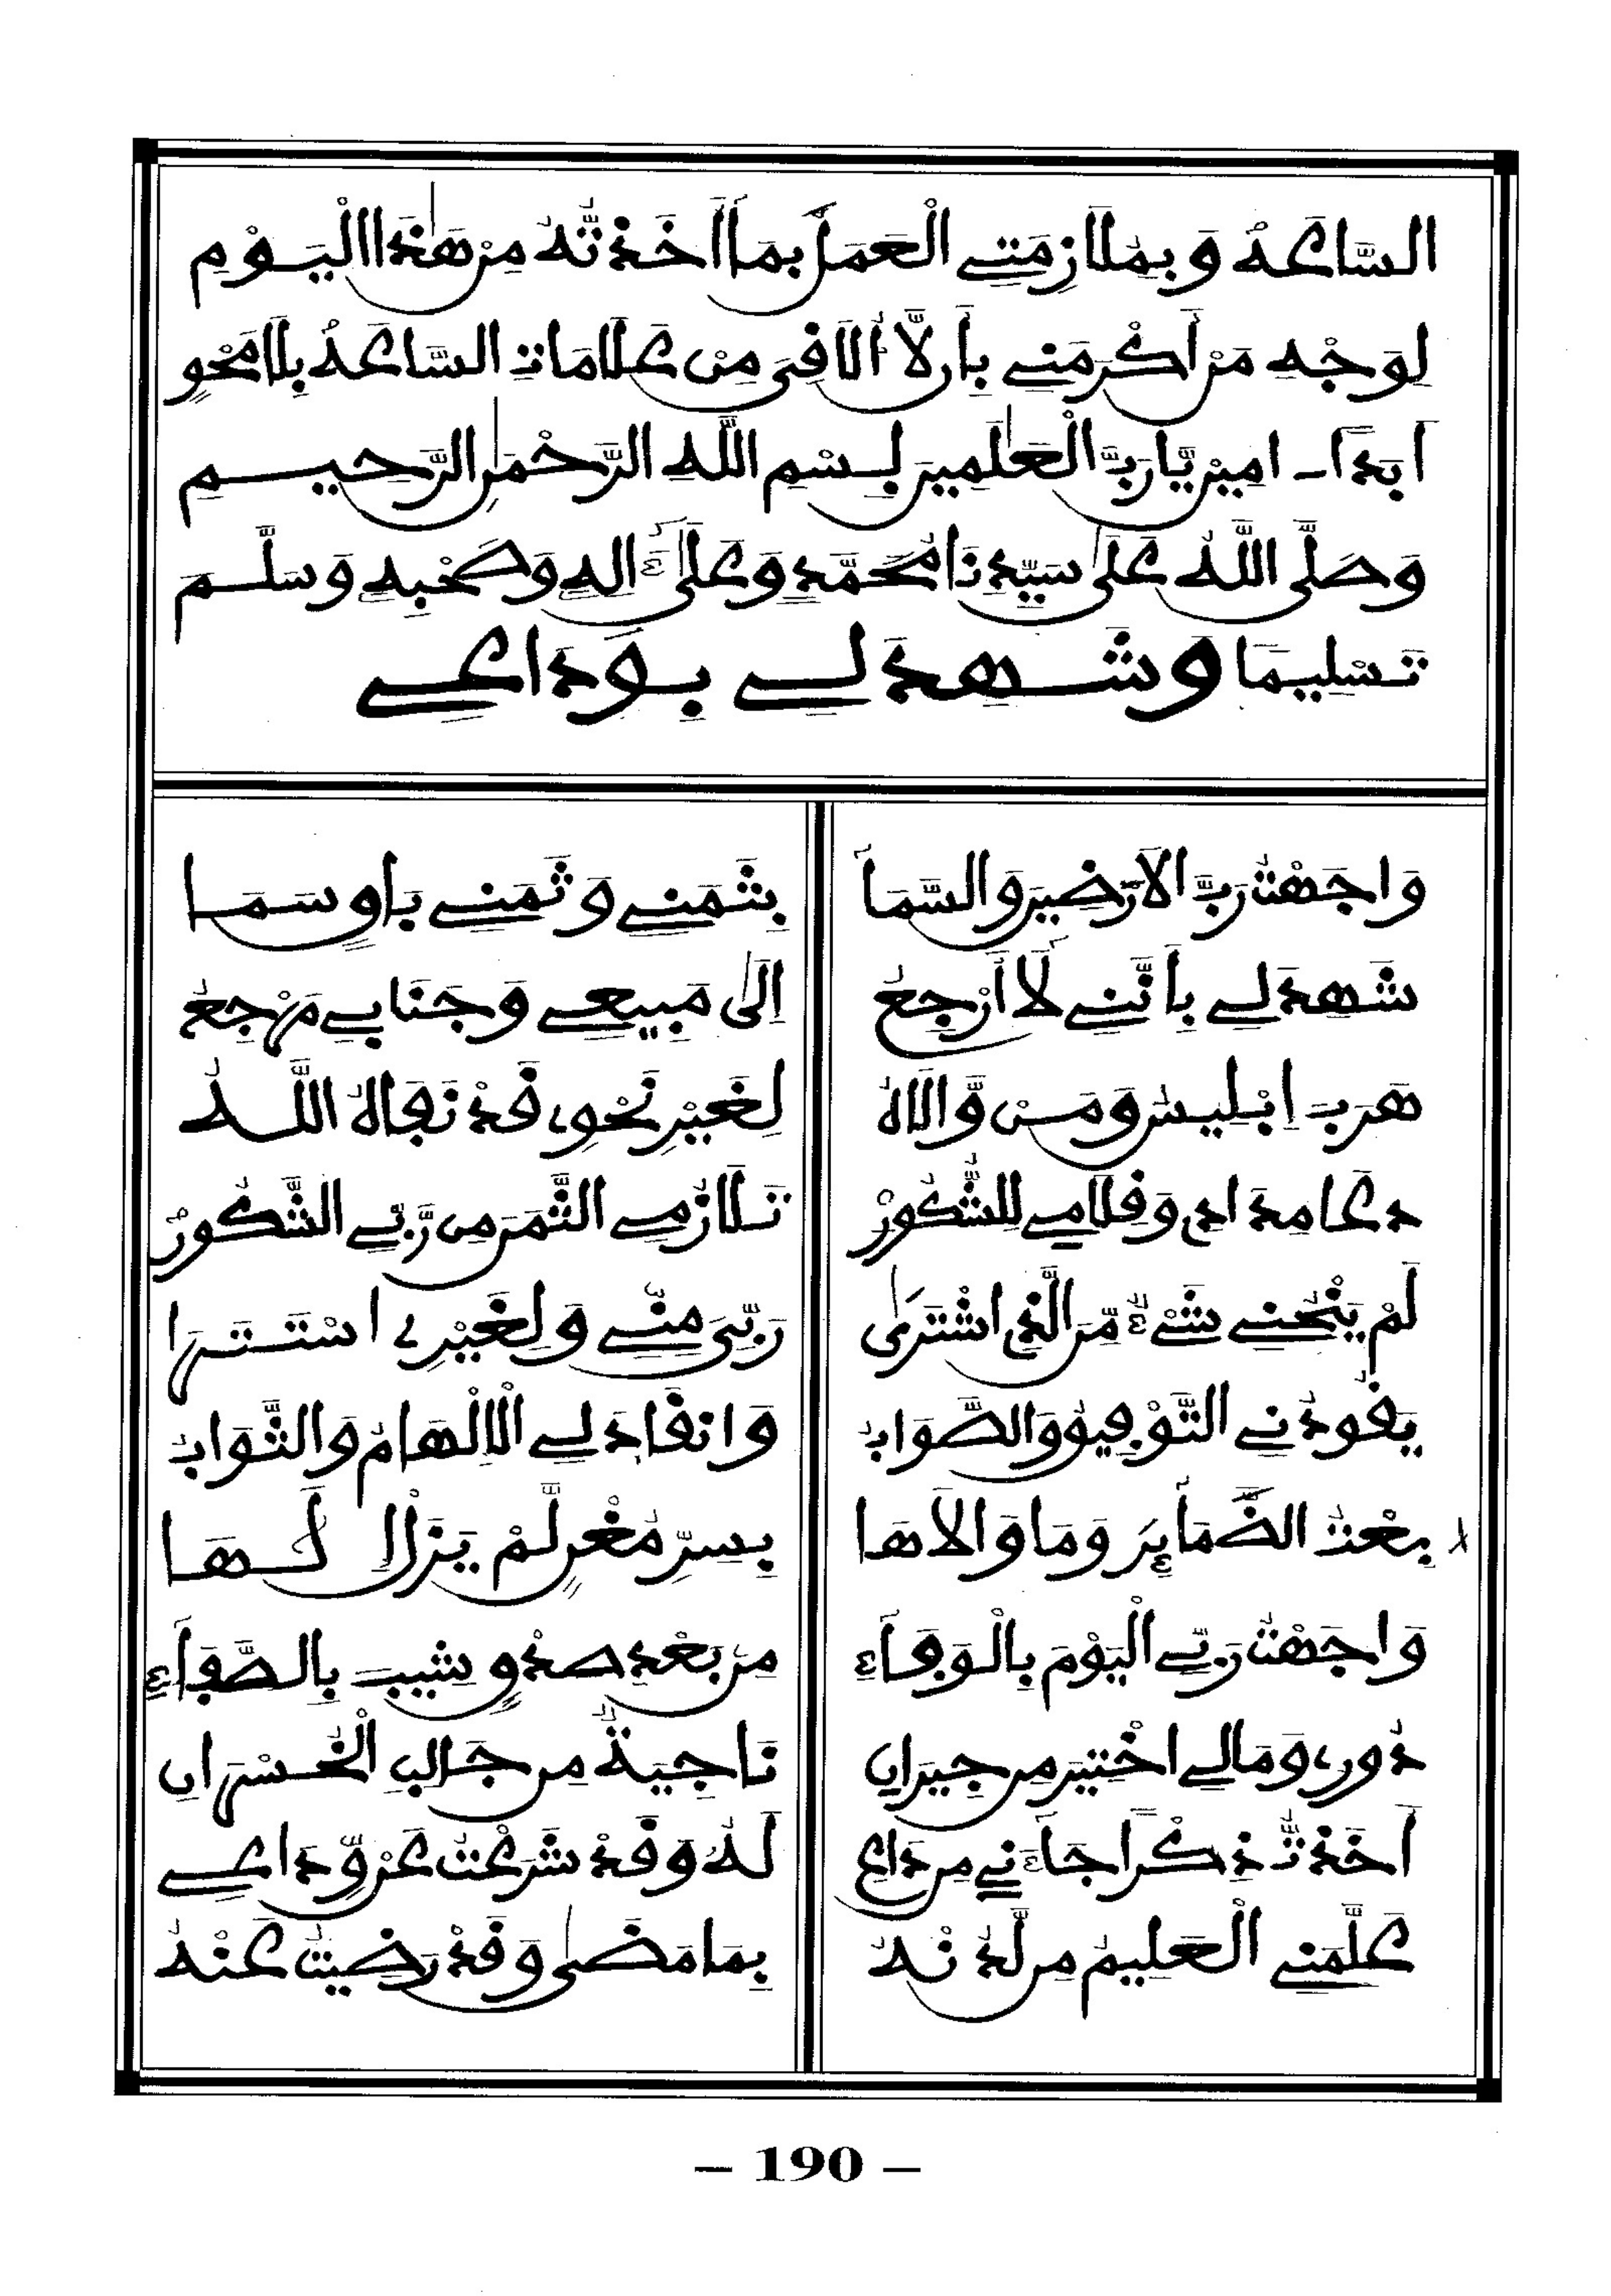 السَّاعَةُ وَبِمُلَازِمَتِي الْعَمَلَ بِمَا أَخَذْتُهُ مِنْ هَٰذَا الْيَوْمِ
لِوَجْهِ مَنْ أَكْرَمَنِي بِأَن لَّا أُلَاقِيَ مِنْ عَلَامَاتِ السَّاعَةِ بِلَا مَحْوٍ
أَبَدًا ـ امِين يَّا رَبَّ الْعَٰلَمِينَ بِسْمِ اللَّهِ الرَّحْمَٰنِ الرَّحِيمِ
وَصَلَّى اللَّهُ عَلَىٰ سَيِّدِنَا مُحَمَّدٍ وَعَلَىٰ ءَالِهِ وَصَحْبِهِ وَسَلَّمَ
تَسْلِيمًا وَشَهِدَ لِي بِوَدَاعِي
وَاجَهْتُ رَبَّ الْأَرَضِينَ وَالسَّمَا بِثَمَنِي وَثَمَنِي بَاوٍ سَمَا
شَهِدَ لِي بِأَنَّنِي لَا أَرْجِعُ إِلَىٰ مَبِيعِي وَجَنَابِي مَرْجِعُ
هَرَبَ إِبْلِيسُ وَمَن وَّالَاهُ لِغَيْرِ نَحْوِي قَدْ نَفَاهُ اللَّهُ
دَعَا مِدَادِي وَقِلَامِي لِلشُّكُورْ تَلَازُمِي الثَّمَرَ مِن رَّبِّي الشَّكُورْ
لَمْ يَنْحُنِي شَيْءٌ مِّنَ الَّذِي اشْتَرَىٰ رَبِّيَ مِنِّي وَلِغَيْرِي اسْتَتَرَا
يَقُودُنِي التَّوْفِيقُ وَالصَّوَابُ وَانقَادَ لِي الْإِلْهَامُ وَالثَّوَابُ
بِعْتُ الضَّمَائِرَ وَمَا وَالَاهَا بِسِرِّ مُغْنٍ لَّمْ يَزَلْ لَهَا
وَاجَهْتُ رَبِّي الْيَوْمَ بِالْوَفَاءِ مِن بَعْدِ صِدْقٍ شِيبَ بِالصَّفَاءِ
دُورِي وَمَالِي اخْتِيرَ مِن جِيرَانِ نَاجِيَةٌ مِن جَالِبِ الْخُسْرَانِ
أَخَذْتُ ذِكْرًا جَاءَنِي مِن دَاعِ لَهُ وَقَدْ شَرَعْتُ عَن وَّدَاعِي
عَلَّمَنِي الْعَلِيمُ مِن لَّدُنْهُ بِمَا مَضَىٰ وَقَدْ رَضِيتُ عَنْهُ
– 190 –